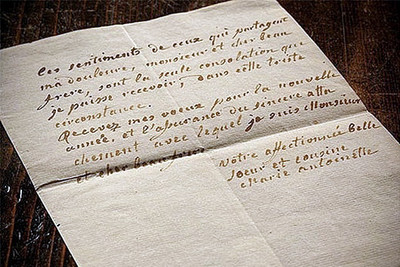 les sentiments de ceux qui partagent
ma douleure, monsieur et cher beau
frere, sont la seule consolation que
je puisse recevoir dans cette triste
circonstance.
Recevez mes voeux pour la nouvelle
année, et l'assurance du sincere atta
chement avec lequel je suis Monsieur
et cher beau frere
votre affectionnée Belle
soeur et cousine
Marie antoinette